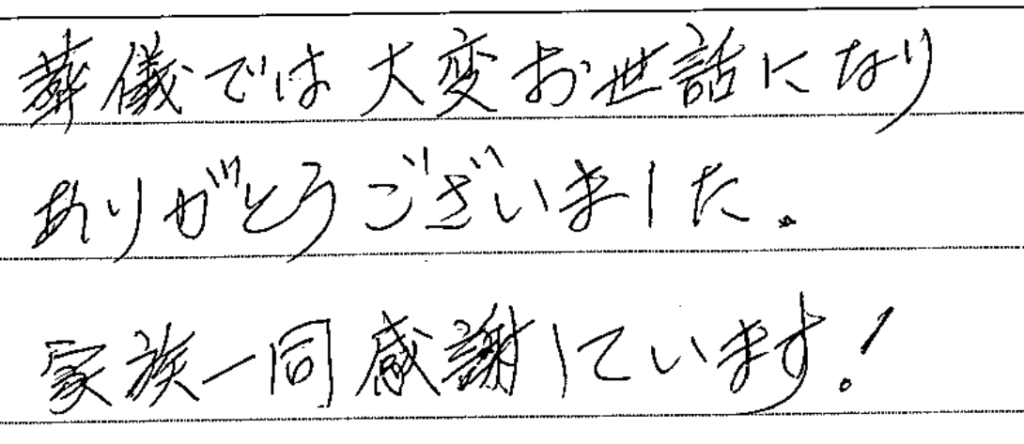 葬儀では大変お世話になり
ありがとうございました。
家族一同感謝しています!